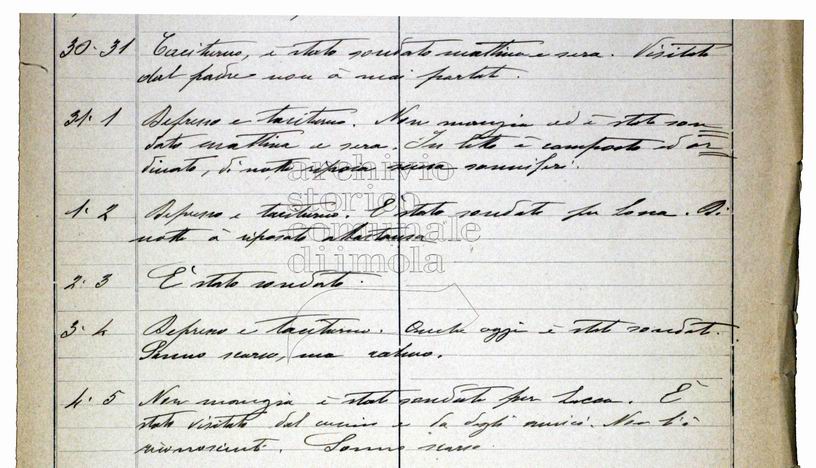 30-31 Taciturno, è stato sondato mattina e sera. Visitato
dal padre non à mai parlato.
31-1 Depresso e taciturno. Non mangia ed è stato son=
dato mattina e sera. In letto è composto ed or=
dinato, di notte riposa senza sonniferi.
1-2 Depresso e taciturno. È stato sondato per bocca. Di
notte à riposato abbastanza
2-3 È stato sondato.
3-4 Depresso e taciturno. Anche oggi è stato sondato.
Sonno scarso, ma calmo.
4-5 Non mangia è stato sondato per bocca. È
stato visitato dal cugino e da degli amici. Non li à
riconosciuti. Sonno scarso.
archivio
storico
comunale
di imola